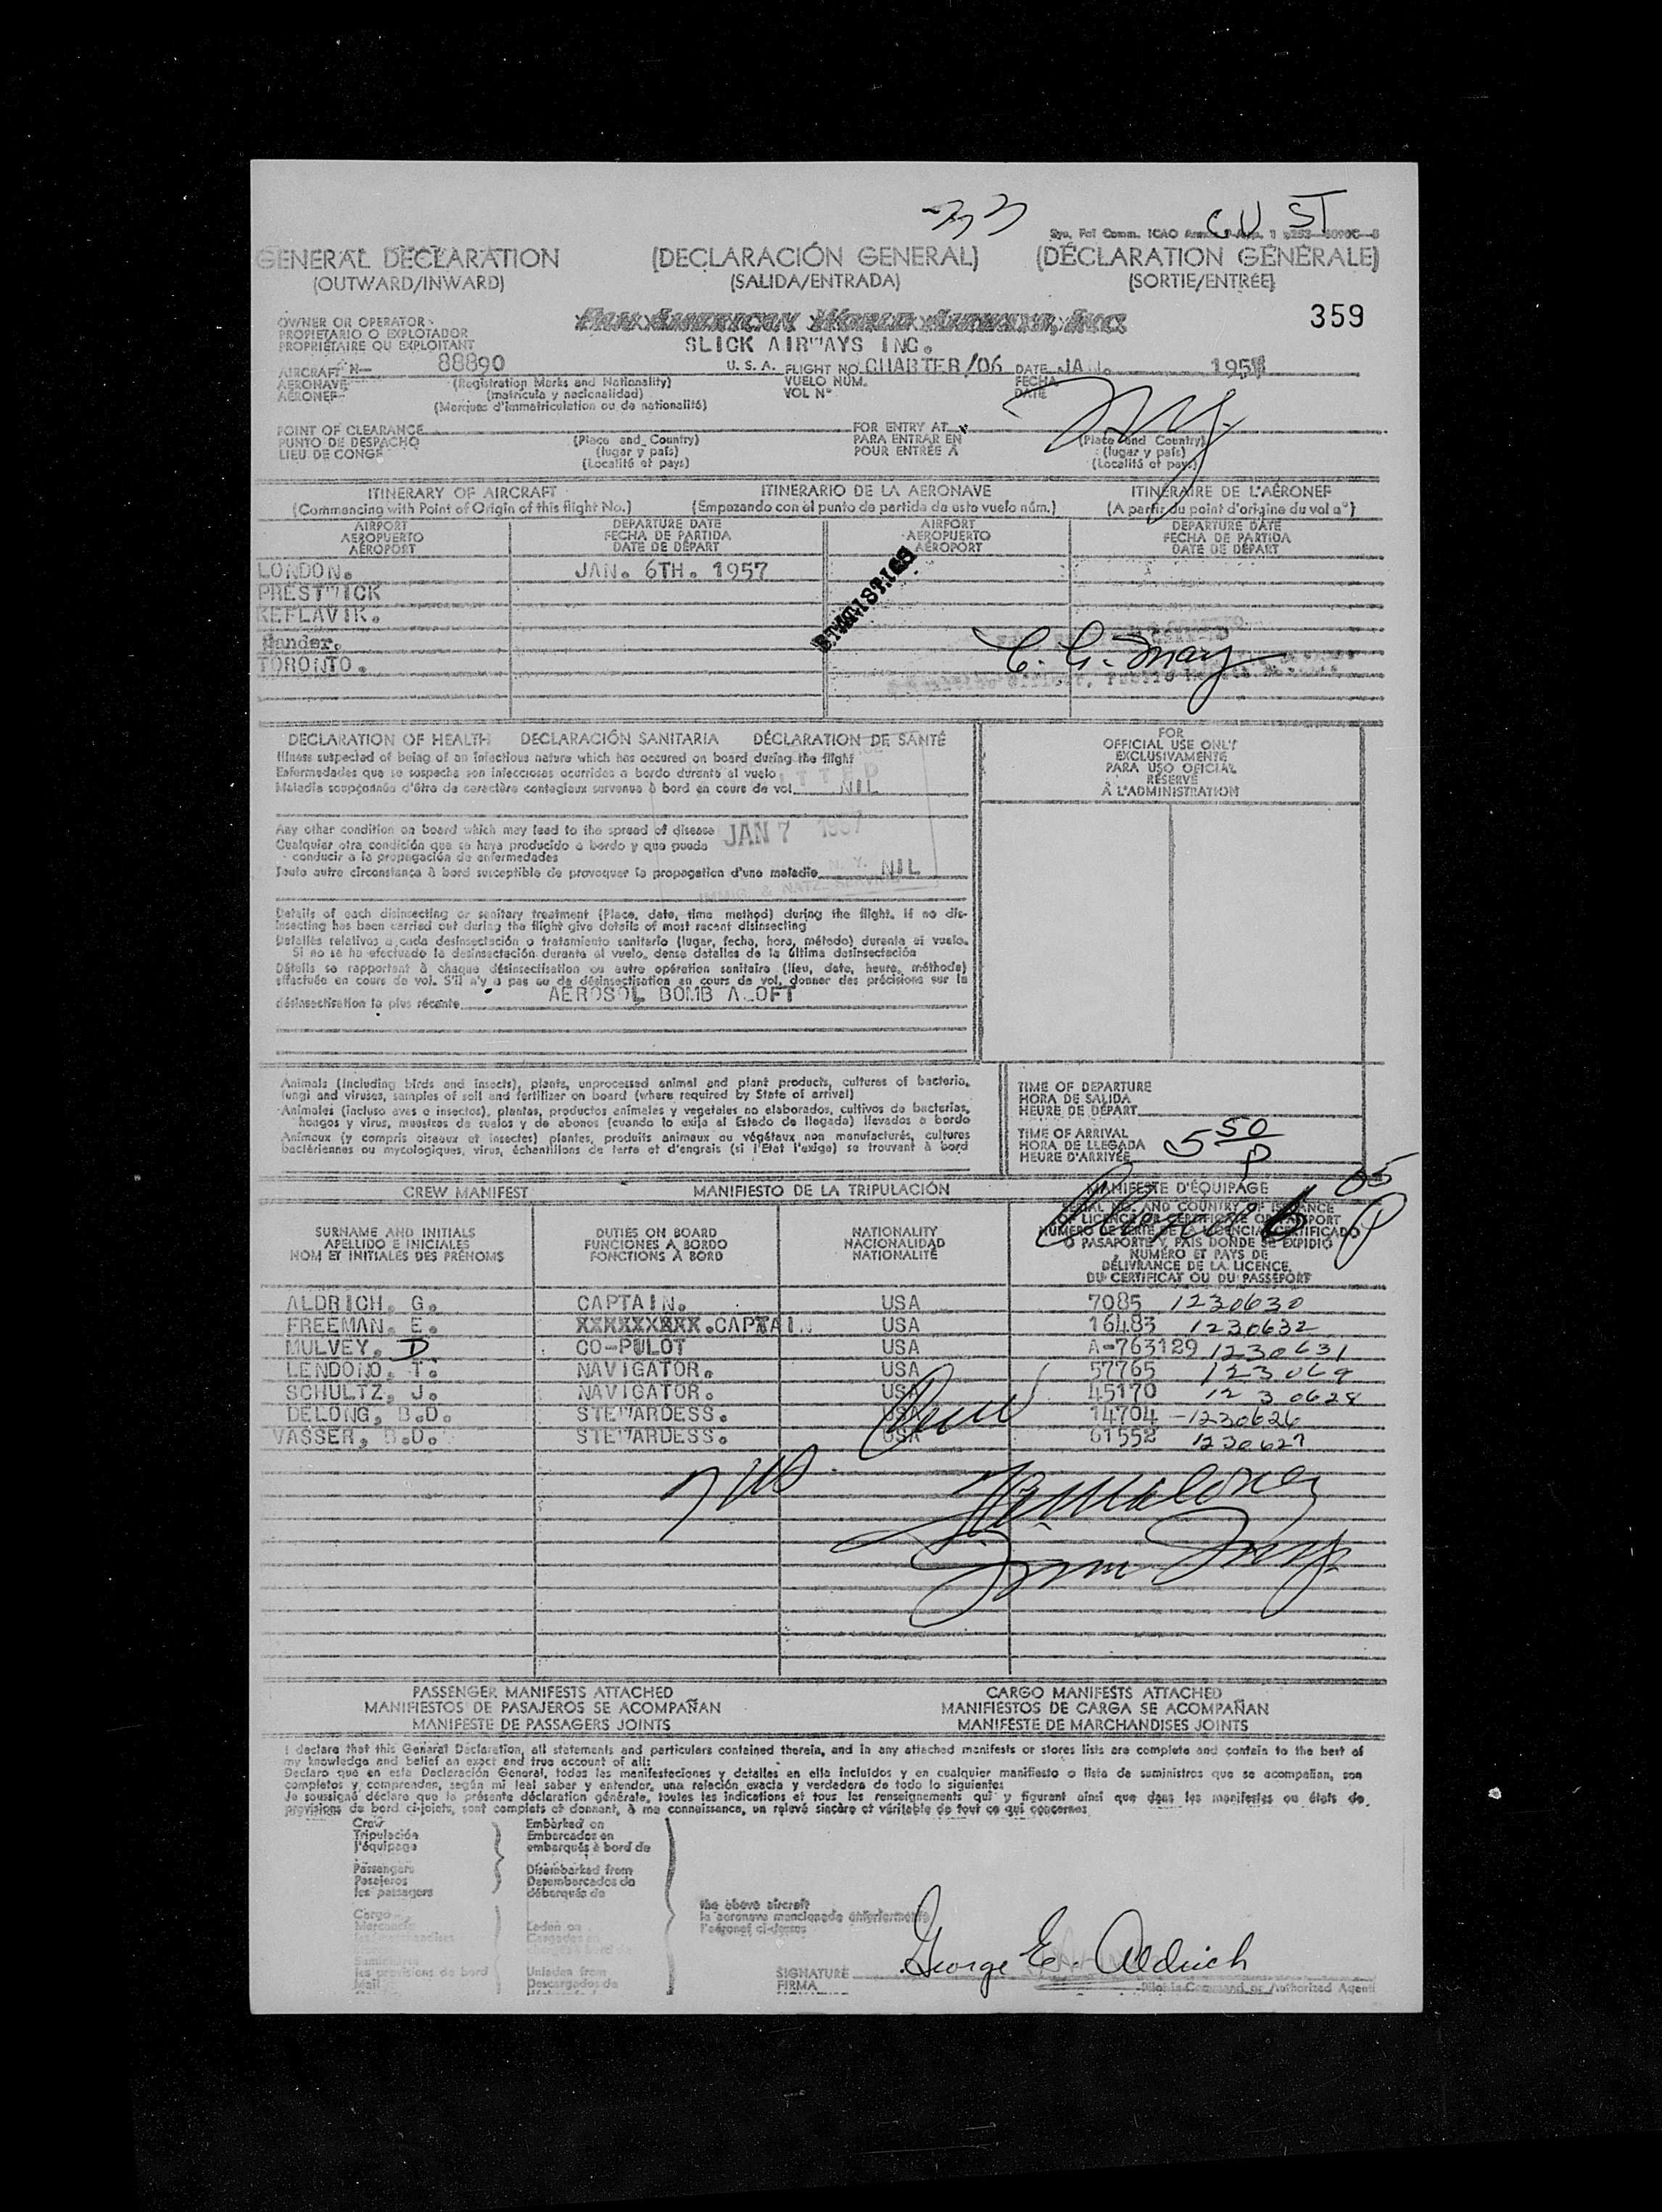 -33
CU ST
GENERAL DECLARATION (DECLARACIÓN GENERAL) (DÉCLARATION GÉNÉRALE)
(OUTWARD/INWARD) (SALIDA/ENTRADA) (SORTIE/ENTRÉE)
359
OWNER OR OPERATOR
PROPIETARIO O EXPLOTADOR
PROPRIÉTAIRE OU EXPLOITANT
PAN AMERICAN WORLD AIRWAYS, INC.
SLICK AIRWAYS INC.
AIRCRAFT N- 88890 U. S. A. FLIGHT NO. CHARTER/06 DATE JAN. 1957
AERONAVE (Registration Marks and Nationality) VUELO NÚM. FECHA
AÉRONEF (matrícula y nacionalidad) VOL Nº DATE
(Marques d'immatriculation ou de nationalité)
POINT OF CLEARANCE FOR ENTRY AT
PUNTO DE DESPACHO (Place and Country) PARA ENTRAR EN (Place and Country)
LIEU DE CONGÉ (lugar y país) POUR ENTRÉE À (lugar y país)
(Localité et pays) (Localité et pays)
ITINERARY OF AIRCRAFT ITINERARIO DE LA AERONAVE ITINÉRAIRE DE L'AÉRONEF
(Commencing with Point of Origin of this flight No.) (Empezando con el punto de partida de este vuelo núm.) (A partir du point d'origine du vol nº)
AIRPORT DEPARTURE DATE AIRPORT DEPARTURE DATE
AEROPUERTO FECHA DE PARTIDA AEROPUERTO FECHA DE PARTIDA
AÉROPORT DATE DE DÉPART AÉROPORT DATE DE DÉPART
LONDON. JAN. 6TH. 1957
PRESTWICK
KEFLAVIK.
Gander.
TORONTO.
STATISTICS
C. G. May
DECLARATION OF HEALTH DECLARACIÓN SANITARIA DÉCLARATION DE SANTÉ
Illness suspected of being of an infectious nature which has occured on board during the flight
Enfermedades que se sospecha son infecciosas ocurridas a bordo durante el vuelo
Maladie soupçonnée d'être de caractère contagieux survenue à bord en cours de vol NIL
Any other condition on board which may lead to the spread of disease
JAN 7 1957
Cualquier otra condición que se haya producido a bordo y que pueda
conducir a la propagación de enfermedades
Toute autre circonstance à bord susceptible de provoquer la propagation d'une maladie NIL
IMMIG. & NATZ. SERVICE
Details of each disinsecting or sanitary treatment (Place, date, time method) during the flight. If no dis-
insecting has been carried out during the flight give details of most recent disinsecting
Detalles relativos a cada desinsectación o tratamiento sanitario (lugar, fecha, hora, método) durante el vuelo.
Si no se ha efectuado la desinsectación durante el vuelo, dense detalles de la última desinsectación
Détails se rapportant à chaque désinsectisation ou autre opération sanitaire (lieu, date, heure, méthode)
effectuée en cours de vol. S'il n'y a pas eu de désinsectisation en cours de vol, donner des précisions sur la
désinsectisation la plus récente AEROSOL BOMB ALOFT
FOR
OFFICIAL USE ONLY
EXCLUSIVAMENTE
PARA USO OFICIAL
RÉSERVÉ
À L'ADMINISTRATION
Animals (including birds and insects), plants, unprocessed animal and plant products, cultures of bacteria,
fungi and viruses, samples of soil and fertilizer on board (where required by State of arrival)
Animales (incluso aves e insectos), plantas, productos animales y vegetales no elaborados, cultivos de bacterias,
hongos y virus, muestras de suelos y de abonos (cuando lo exija el Estado de llegada) llevados a bordo
Animaux (y compris oiseaux et insectes) plantes, produits animaux ou végétaux non manufacturés, cultures
bactériennes ou mycologiques, virus, échantillons de terre et d'engrais (si l'État l'exige) se trouvant à bord
TIME OF DEPARTURE
HORA DE SALIDA
HEURE DE DÉPART
TIME OF ARRIVAL
HORA DE LLEGADA
HEURE D'ARRIVÉE
5 50 P
CREW MANIFEST MANIFIESTO DE LA TRIPULACIÓN MANIFESTE D'ÉQUIPAGE
6 05 P
SURNAME AND INITIALS DUTIES ON BOARD NATIONALITY SERIAL NO. AND COUNTRY OF ISSUANCE
APELLIDO E INICIALES FUNCIONES A BORDO NACIONALIDAD OF LICENCE OR CERTIFICATE OR PASSPORT
NOM ET INITIALES DES PRÉNOMS FONCTIONS À BORD NATIONALITÉ NÚMERO DE SERIE DE LA LICENCIA CERTIFICADO
O PASAPORTE Y PAÍS DONDE SE EXPIDIÓ
NUMÉRO ET PAYS DE
DÉLIVRANCE DE LA LICENCE,
DU CERTIFICAT OU DU PASSEPORT
ALDRICH. G. CAPTAIN. USA 7085 1230630
FREEMAN. E. XXXXXXXXX.CAPTAIN USA 16483 1230632
MULVEY. D CO-PULOT USA A-763129 1230631
LENDONO. T. NAVIGATOR. USA 57765
SCHULTZ, J. NAVIGATOR. USA 45170 1230628
DELONG, B.D. STEWARDESS. USA 14704 -1230626
VASSER, B.D. STEWARDESS. USA 61552 1230627
PASSENGER MANIFESTS ATTACHED CARGO MANIFESTS ATTACHED
MANIFIESTOS DE PASAJEROS SE ACOMPAÑAN MANIFIESTOS DE CARGA SE ACOMPAÑAN
MANIFESTE DE PASSAGERS JOINTS MANIFESTE DE MARCHANDISES JOINTS
I declare that this General Declaration, all statements and particulars contained therein, and in any attached manifests or stores lists are complete and contain to the best of
my knowledge and belief an exact and true account of all:
Declaro que en esta Declaración General, todas las manifestaciones y detalles en ella incluídos y en cualquier manifiesto o lista de suministros que se acompañan, son
completos y comprenden, según mi leal saber y entender, una relación exacta y verdadera de todo lo siguiente:
Je soussigné déclare que la présente déclaration générale, toutes les indications et tous les renseignements qui y figurent ainsi que dans les manifestes ou états de
provisions de bord ci-joints, sont complets et donnent, à ma connaissance, un relevé sincère et véritable de tout ce qui concerne:
Crew Embarked on
Tripulación Embarcados en
l'équipage embarqués à bord de
Passengers Disembarked from
Pasajeros Desembarcados de
les passagers débarqués de
the above aircraft
la aeronave mencionada anteriormente
l'aéronef ci-dessus
Cargo Laden on
Mercancía Cargados en
les provisions de bord Unladen from
Mail Descargados de
SIGNATURE George E. Aldrich
FIRMA Pilot in Command or Authorized Agent